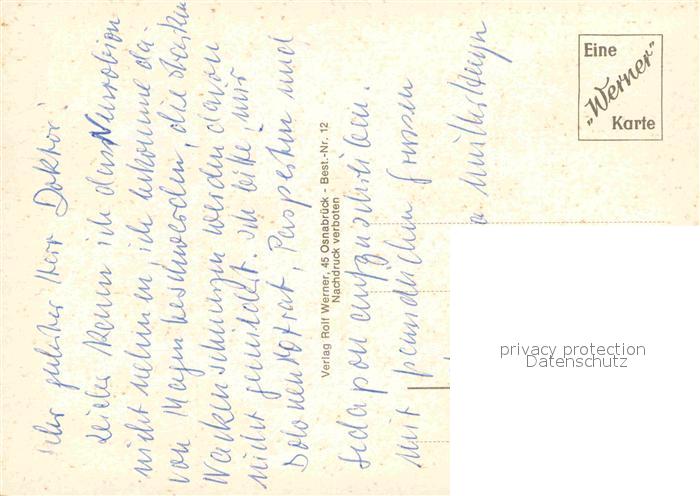 Sehr geehrter Herr Doktor!
Leider kann ich das
nicht nehmen, ich bekomme da-
von Magenbeschwerden, die starken
Nackenschmerzen werden davon
nicht gemildert. Ich bitte, mir
und
aufzuschreiben.
Mit freundlichen Grüssen
Verlag Rolf Werner, 45 Osnabrück - Best.-Nr. 12
Nachdruck verboten
Eine
„Werner"
Karte
privacy protection
Datenschutz